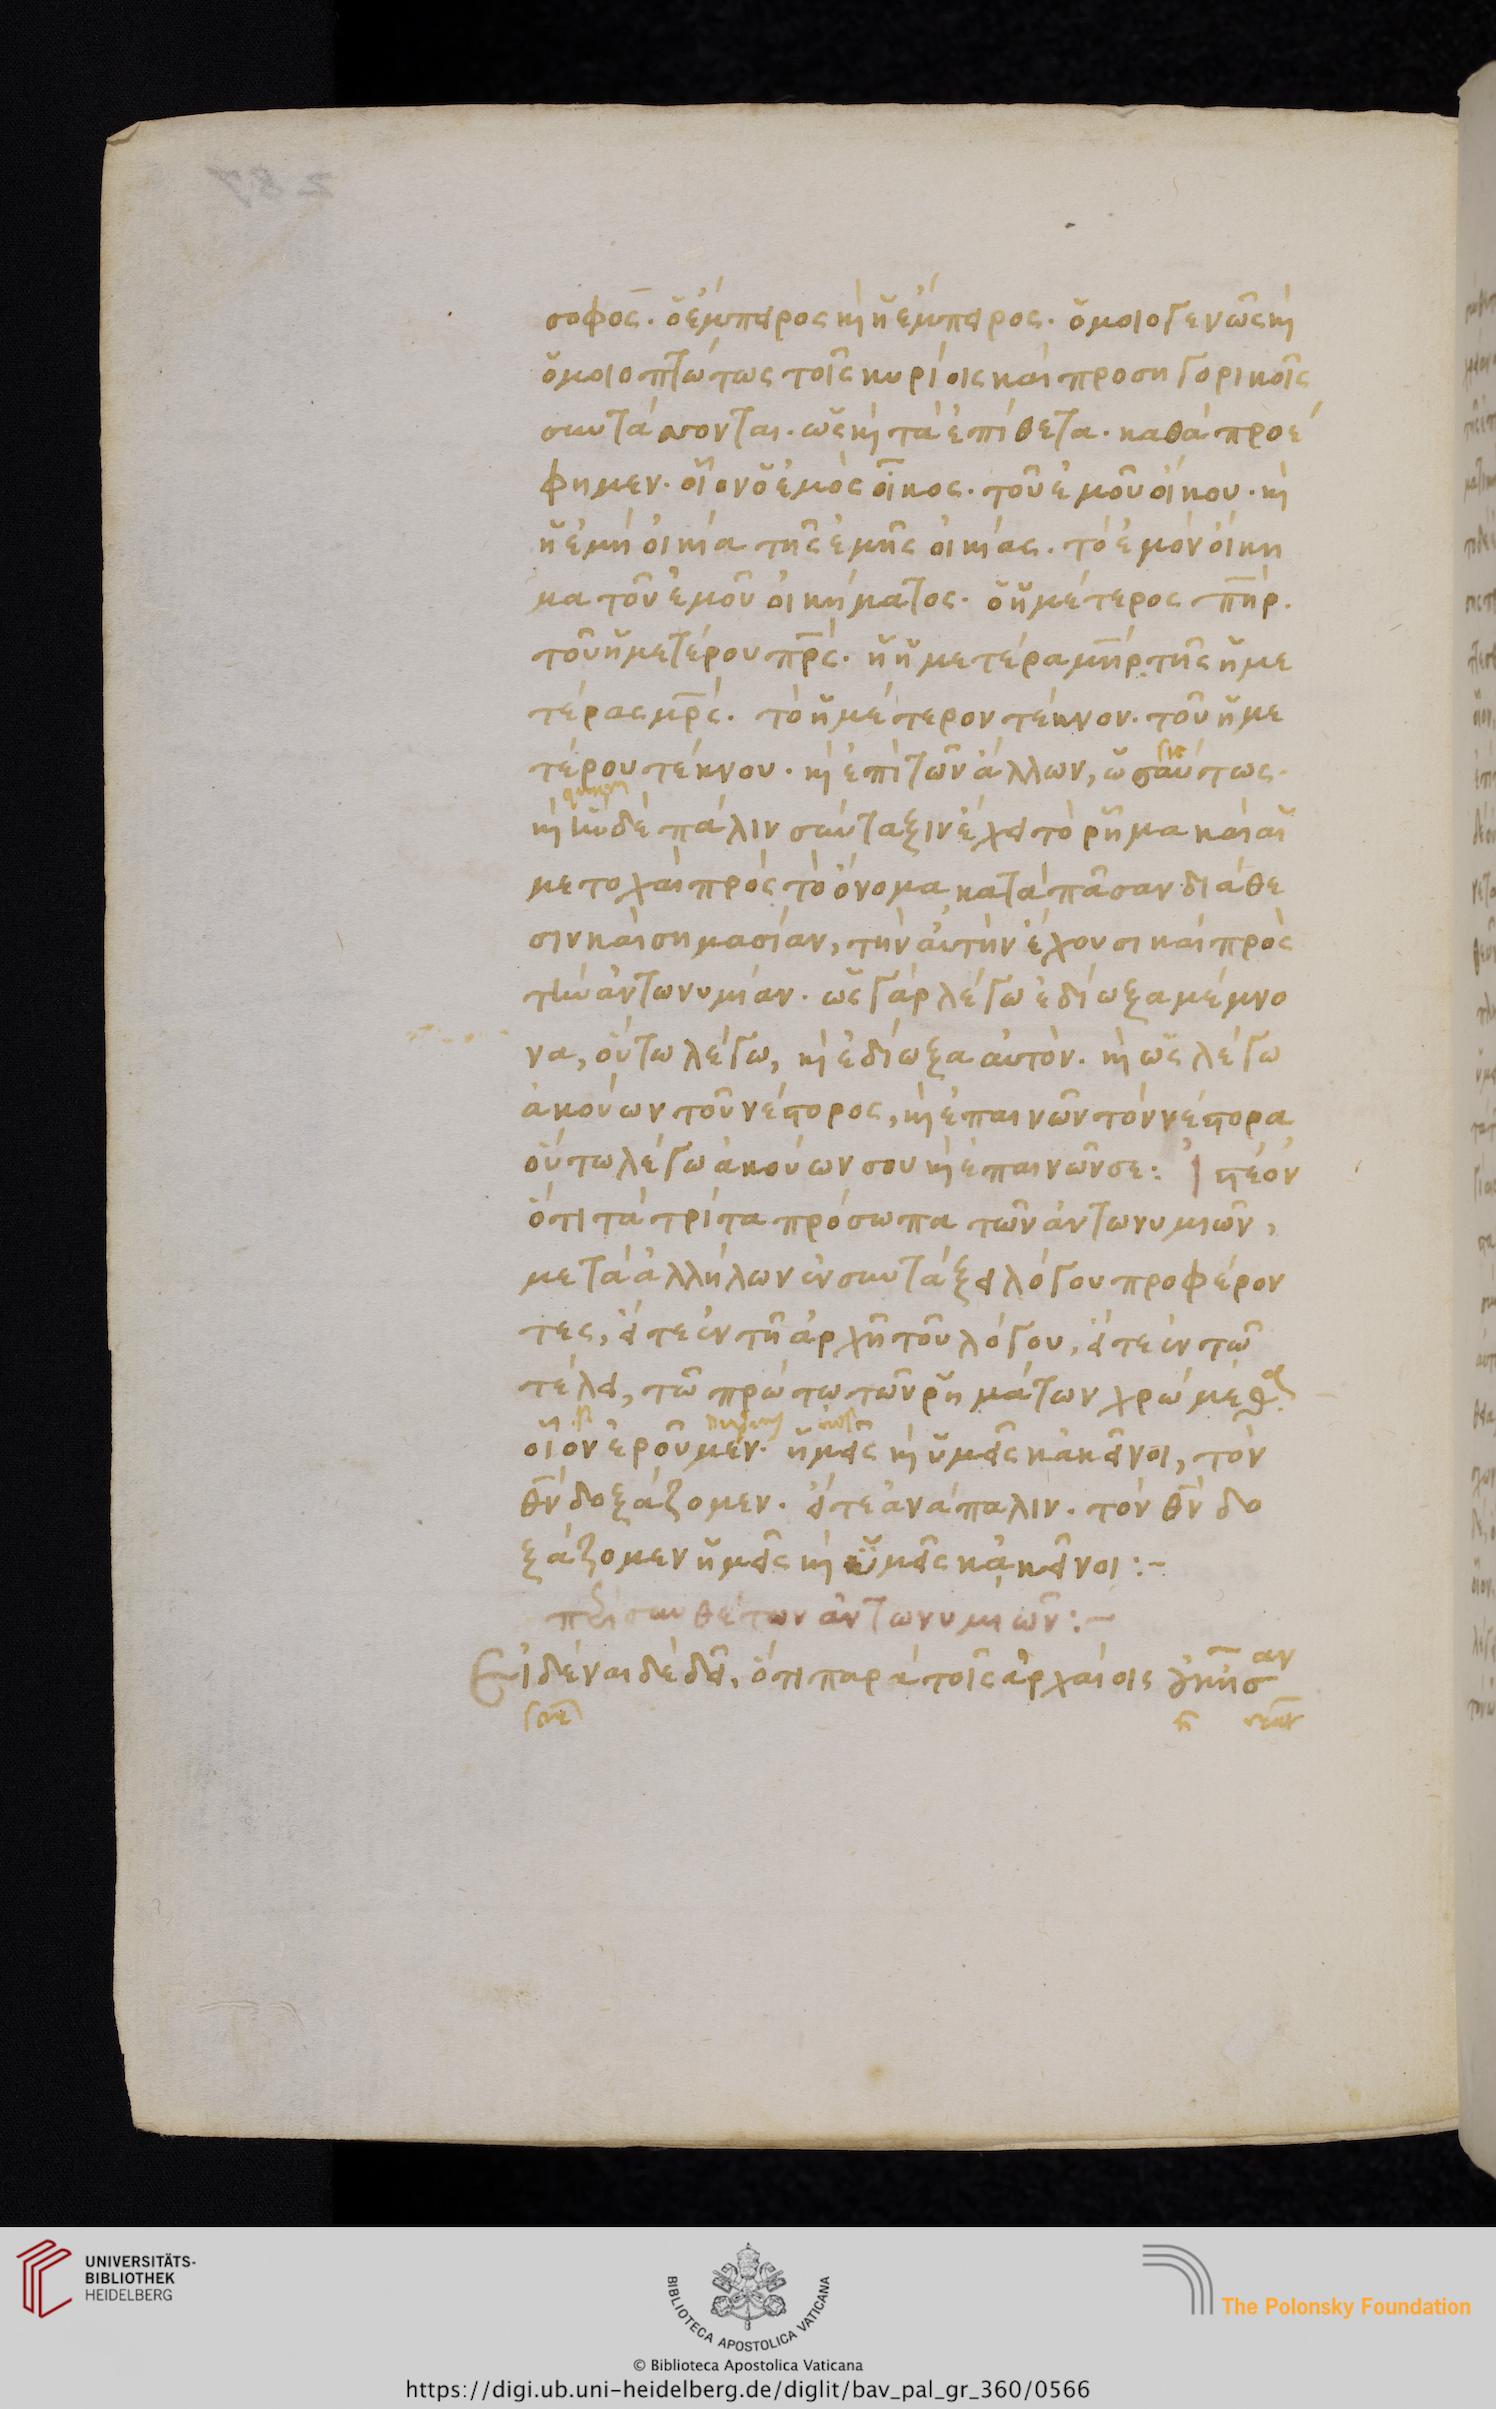 287
σοφος. ὁ ἔμπειρος κὴ ἡ ἔμπειρος. ὁμοιογενῶς κὴ
ὁμοιοπτώτως τοῖς κυρίοις καὶ προσηγορικοῖς
συντάσσονται. ὡς κὴ τὰ ἐπίθετα. καθὰ προέ
φημεν. οἷον ὁ ἐμὸς οἶκος. τοῦ ἐμοῦ οἴκου. κὴ
ἡ ἐμὴ οἰκία τῆς ἐμῆς οἰκίας. τὸ ἐμὸν οἴκη
μα τοῦ ἐμοῦ οἰκήματος. ὁ ἡμέτερος πηρ.
τοῦ ἡμετέρου πρς. ἡ ἡμετέρα μηρ τῆς ἡμε
τέρας μρς. τὸ ἡμέτερον τέκνον. τοῦ ἡμε
τέρου τέκνου. κὴ ἐπὶ τῶν ἄλλων, ὡσαύτως.
κὴ ἣν δὲ πάλιν σύνταξιν ἔχει τὸ ῥῆμα καὶ αἱ
μετοχαὶ πρὸς τὸ ὄνομα κατὰ πᾶσαν διάθε
σιν καὶ σημασίαν, τὴν αὐτὴν ἔχουσι καὶ πρὸς
τὴν ἀντωνυμίαν. ὡς γὰρ λέγω ἐδίωξα μέμνο
να, οὕτω λέγω, κὴ ἐδίωξα αὐτὸν. κὴ ὡς λέγω
ἀκούων τοῦ νέστορος, κὴ ἐπαινῶν τὸν νέστορα
οὕτω λέγω ἀκούων σου κὴ ἐπαινῶν σε: Ἰστέον
ὅτι τὰ τρίτα πρόσωπα τῶν ἀντωνυμιῶν,
μετὰ ἀλλήλων ἐν συντάξει λόγου προφέρον
τες, εἴτε ἐν τῇ ἀρχῇ τοῦ λόγου, εἴτε ἐν τῶ
τέλει, τῶ πρώτω τῶν ῥημάτων χρώμεθα.
οἷον ἐροῦμεν. ἡμεῖς κὴ ὑμεῖς κἀκεῖνοι, τὸν
θν δοξάζομεν. εἴτε ἀνάπαλιν. τὸν θν δο
ξάζομεν ἡμεῖς κὴ ὑμεῖς κἀκεῖνοι:-
περὶ συνθέτων ἀντωνυμιῶν:-
Εἰδέναι δὲ δεῖ, ὅτι παρὰ τοῖς ἀρχαίοις
UNIVERSITÄTS-
BIBLIOTHEK
HEIDELBERG
BIBLIOTECA APOSTOLICA VATICANA
The Polonsky Foundation
© Biblioteca Apostolica Vaticana
https://digi.ub.uni-heidelberg.de/diglit/bav_pal_gr_360/0566